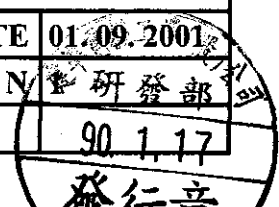 TE 01.09.2001
N 研發部
90.1.17
發行章